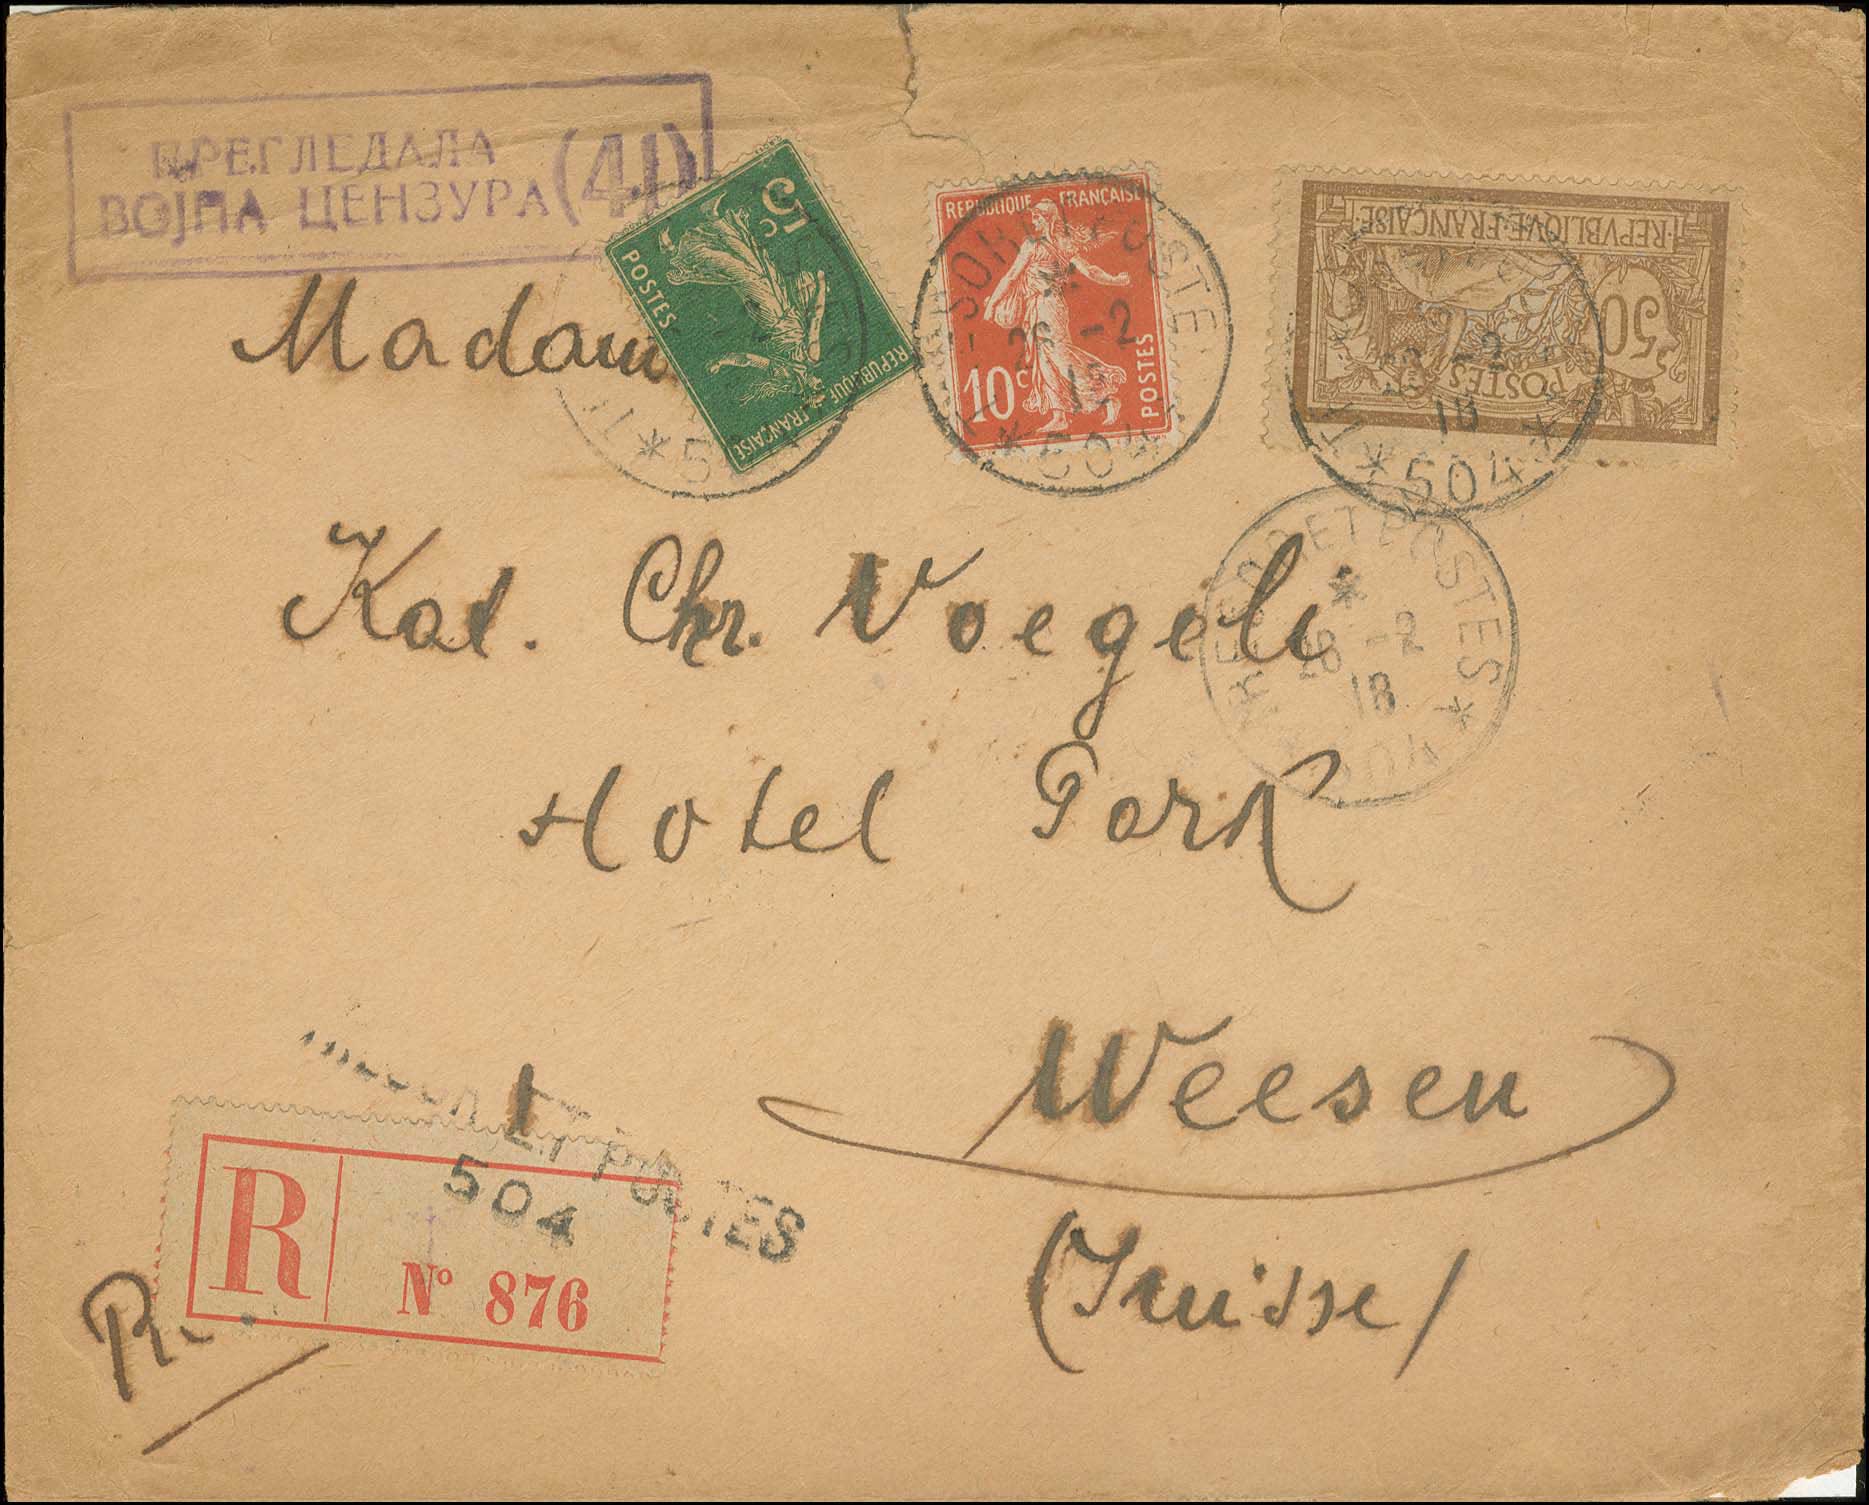 ПРЕГЛЕДАЛА
ВОЈНА ЦЕНЗУРА (41)
5c
POSTES
REPUBLIQUE FRANÇAISE
REPUBLIQUE FRANÇAISE
10c
POSTES
REPVBLIQVE·FRANÇAISE
50
POSTES
* 504 *
28 -2
18
* 504 *
TRESOR ET POSTES
28 -2
18
* 504 *
Madame
Kat. Chr. Voegeli
Hotel Park
Weesen
(Suisse)
TRESOR ET POSTES
504
R
N° 876
R.